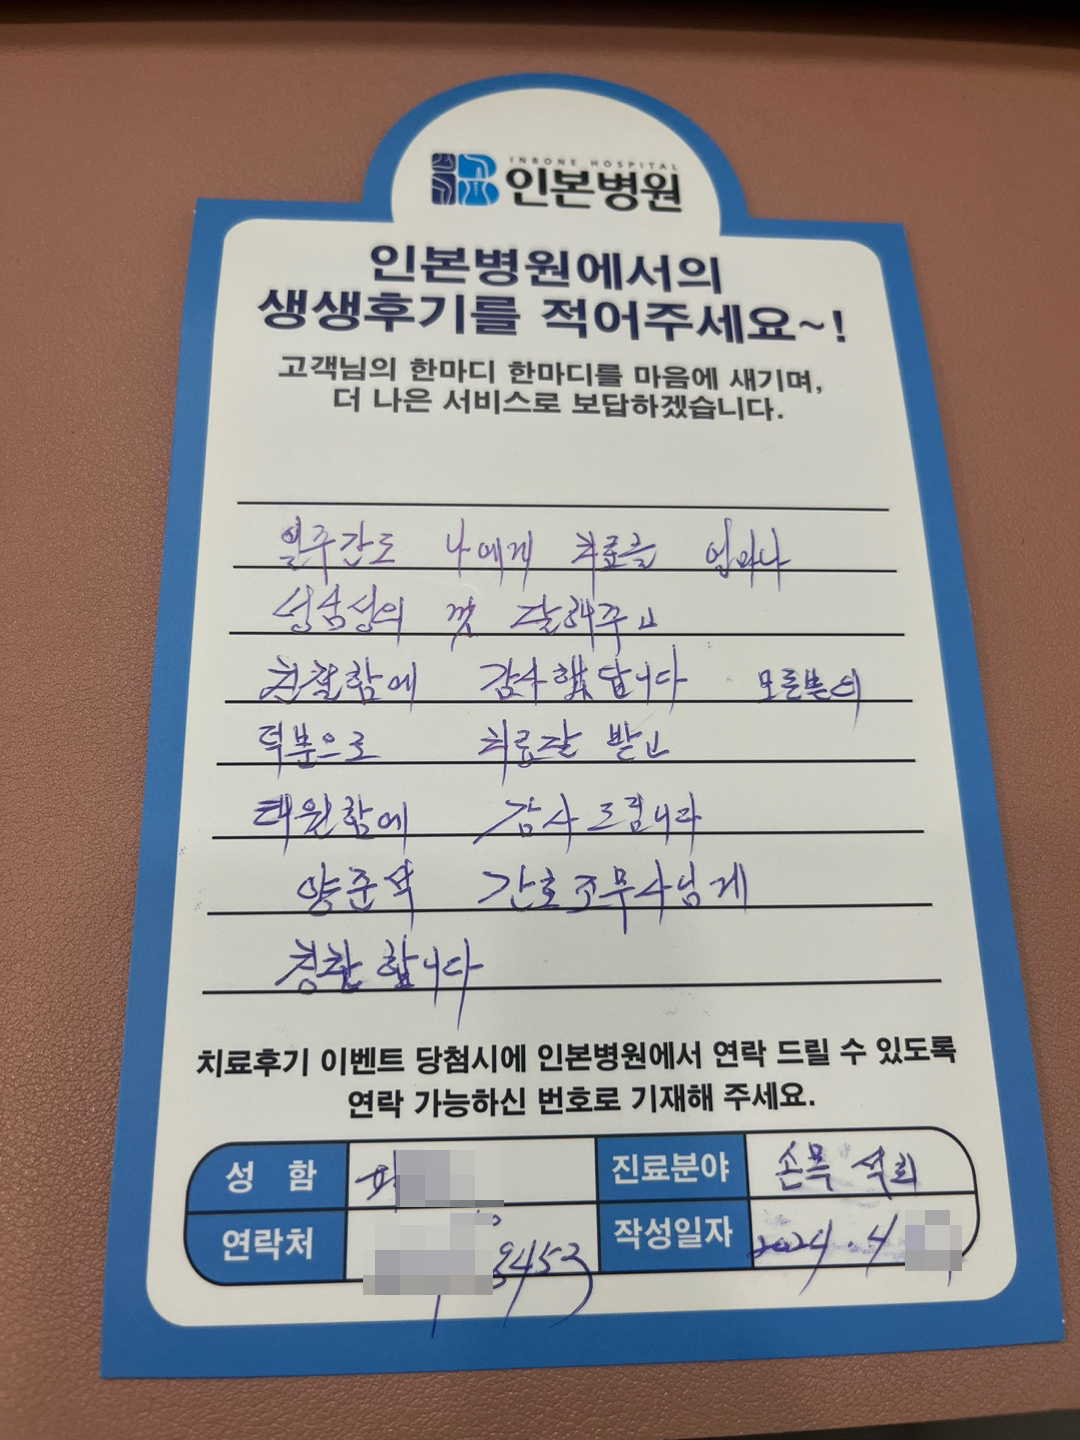 INBONE HOSPITAL
인본병원
인본병원에서의
생생후기를 적어주세요~!
고객님의 한마디 한마디를 마음에 새기며,
더 나은 서비스로 보답하겠습니다.
일주간도 나에게 치료를 얼마나
성심성의 껏 잘해주고
친절함에 감사했답니다 모든분의
덕분으로 치료잘 받고
태원함에 감사드립니다
양준석 간호조무사님게
칭찬합니다
치료후기 이벤트 당첨시에 인본병원에서 연락 드릴 수 있도록
연락 가능하신 번호로 기재해 주세요.
성 함 진료분야 손목 석회
연락처 3453 작성일자 2024.4